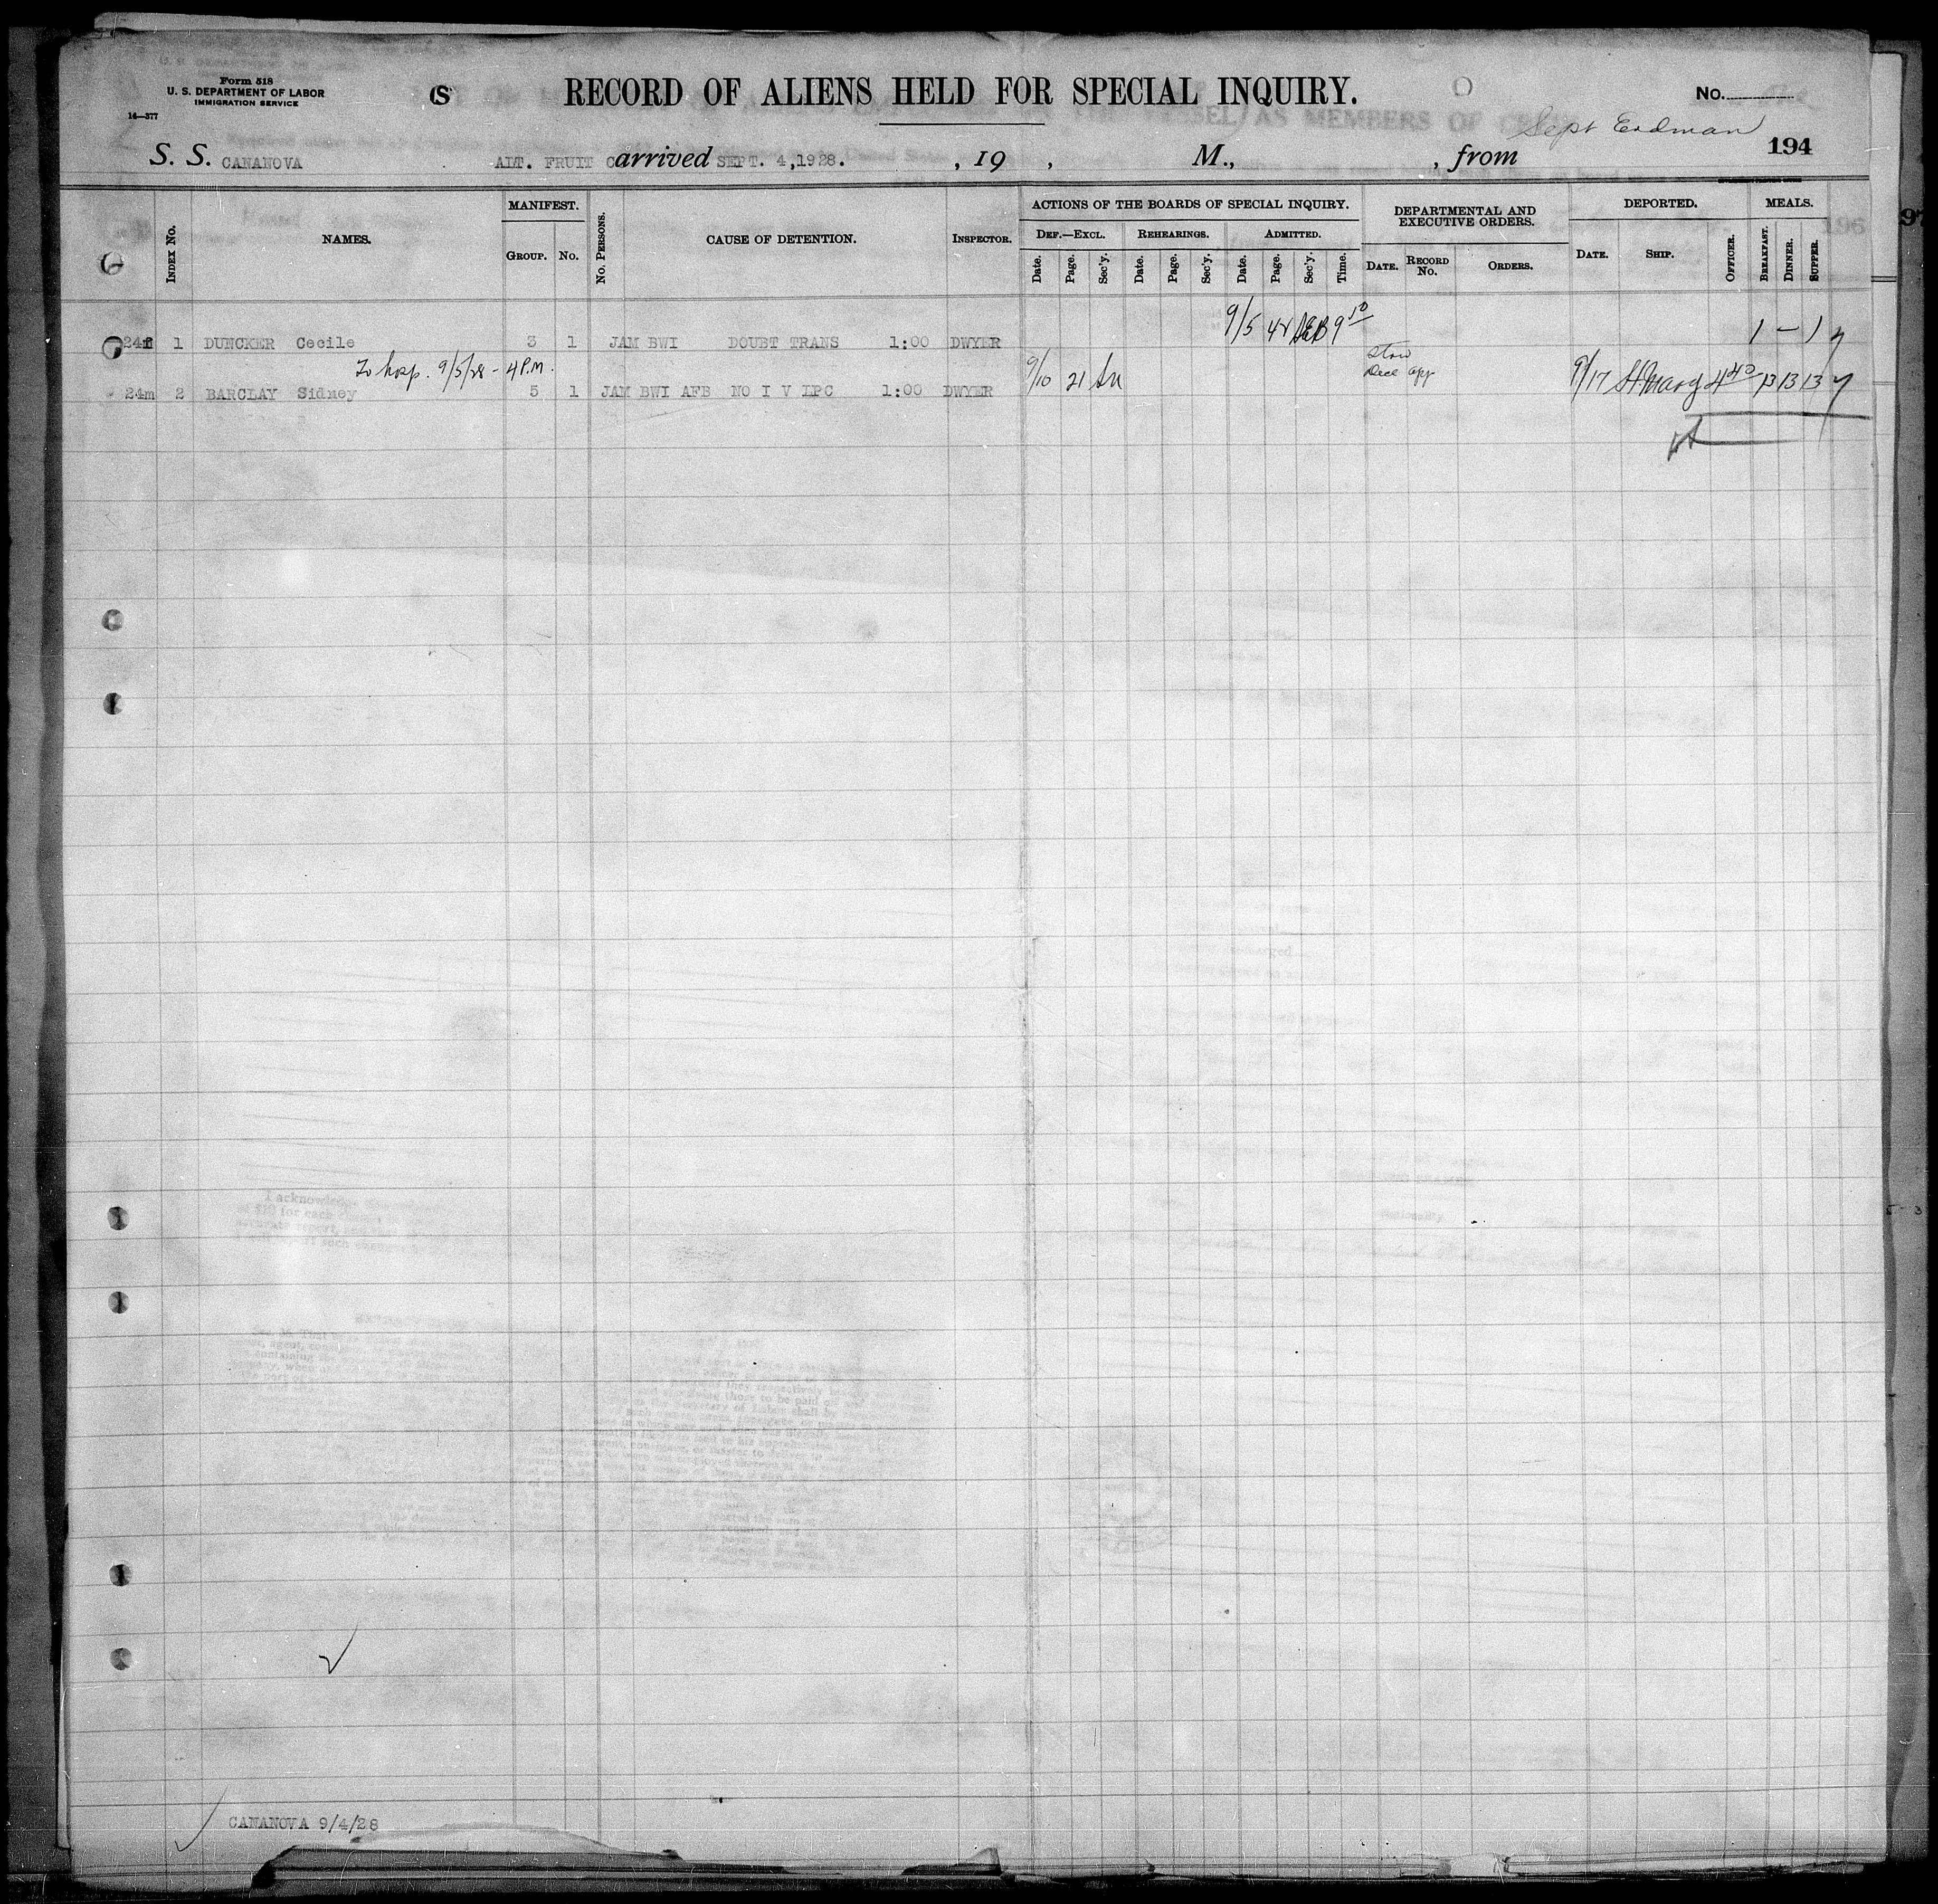 Form 518
U. S. DEPARTMENT OF LABOR
IMMIGRATION SERVICE
14—377
(S
RECORD OF ALIENS HELD FOR SPECIAL INQUIRY.
No.
Sept Erdman
194
S. S. CANANOVA ALT. FRUIT C arrived SEPT. 4,1928. , 19 , M., , from
INDEX No. NAMES. MANIFEST. GROUP. No. No. PERSONS. CAUSE OF DETENTION. INSPECTOR. ACTIONS OF THE BOARDS OF SPECIAL INQUIRY. DEF.—EXCL. Date. Page. Sec'y. REHEARINGS. Date. Page. Sec'y. ADMITTED. Date. Page. Sec'y. Time. DEPARTMENTAL AND EXECUTIVE ORDERS. DATE. RECORD No. ORDERS. DEPORTED. DATE. SHIP. OFFICER. MEALS. BREAKFAST. DINNER. SUPPER.
196
97
24f 1 DUNCKER Cecile 3 1 JAM BWI DOUBT TRANS 1:00 DWYER 9/5 42 9 10 1 — 1
To hosp. 9/5/28 - 4 P.M.
24m 2 BARCLAY Sidney 5 1 JAM BWI AFB NO I V LPC 1:00 DWYER 9/10 21 9/17 St Mary 4 40 13 13 13
CANANOVA 9/4/28